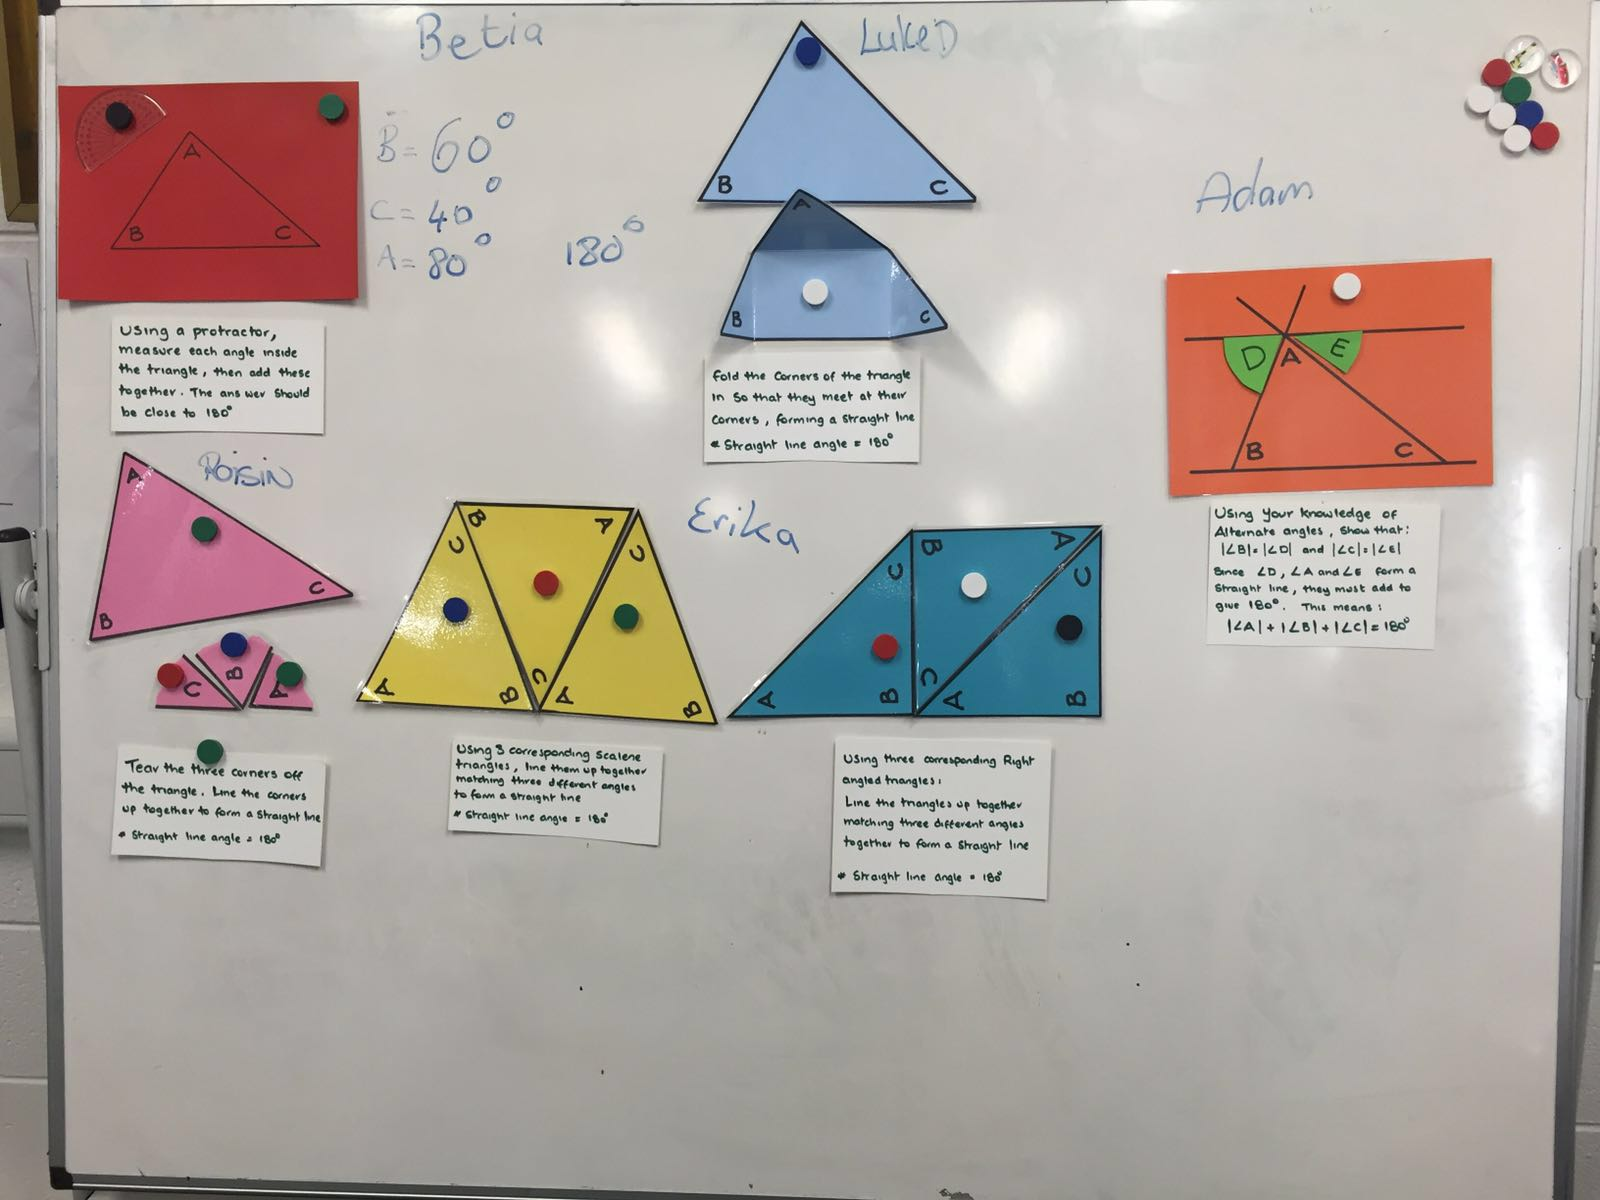 Betia
A
B
C
B = 60°
C = 40°
A = 80°
180°
Using a protractor,
measure each angle inside
the triangle, then add these
together. The answer should
be close to 180°
Luke D
B
C
A
B
C
Fold the corners of the triangle
in so that they meet at their
corners, forming a straight line
* Straight line angle = 180°
Adam
D
A
E
B
C
Using your knowledge of
Alternate angles, show that:
|∠B|=|∠D| and |∠C|=|∠E|
Since ∠D, ∠A and ∠E form a
straight line, they must add to
give 180°. This means:
|∠A| + |∠B| + |∠C| = 180°
Roisin
A
B
C
C
B
A
Tear the three corners off
the triangle. Line the corners
up together to form a straight line
* Straight line angle = 180°
Erika
B
A
C
C
A
B
C
A
B
Using 3 corresponding Scalene
triangles, line them up together
matching three different angles
to form a straight line
* Straight line angle = 180°
B
A
C
C
A
B
C
A
B
Using three corresponding Right
angled triangles:
Line the triangles up together
matching three different angles
together to form a straight line
* Straight line angle = 180°